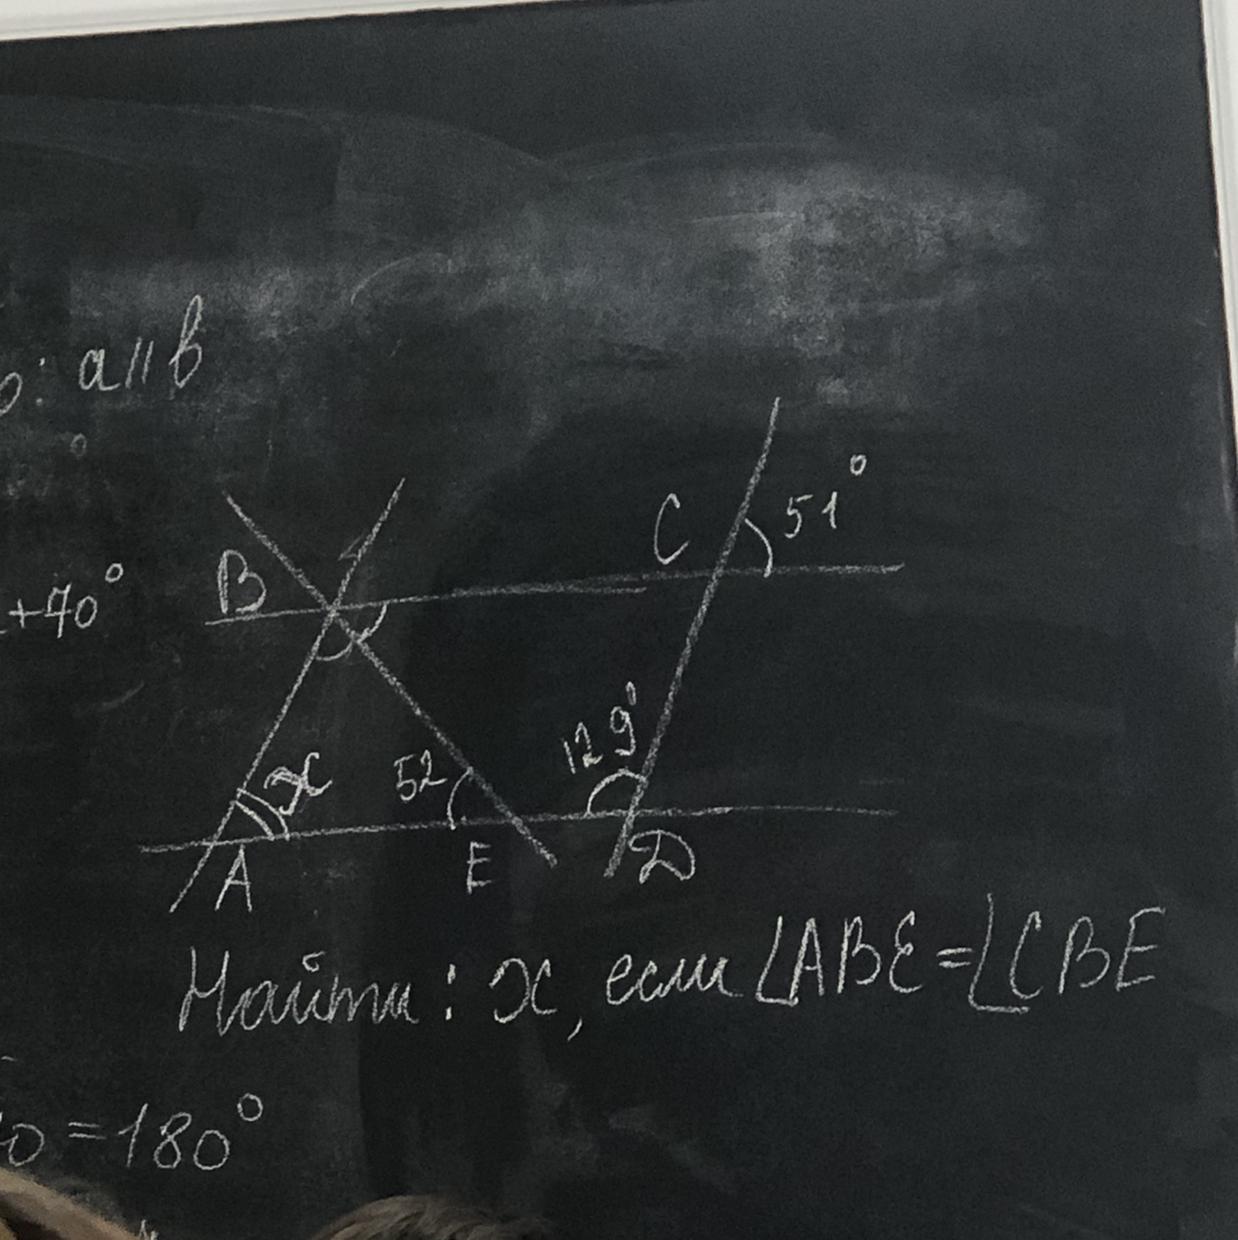 : a || b
+40°
B
C
51°
x
52
129°
A
E
D
Найти: x, если ∠ABE=∠CBE
0=180°